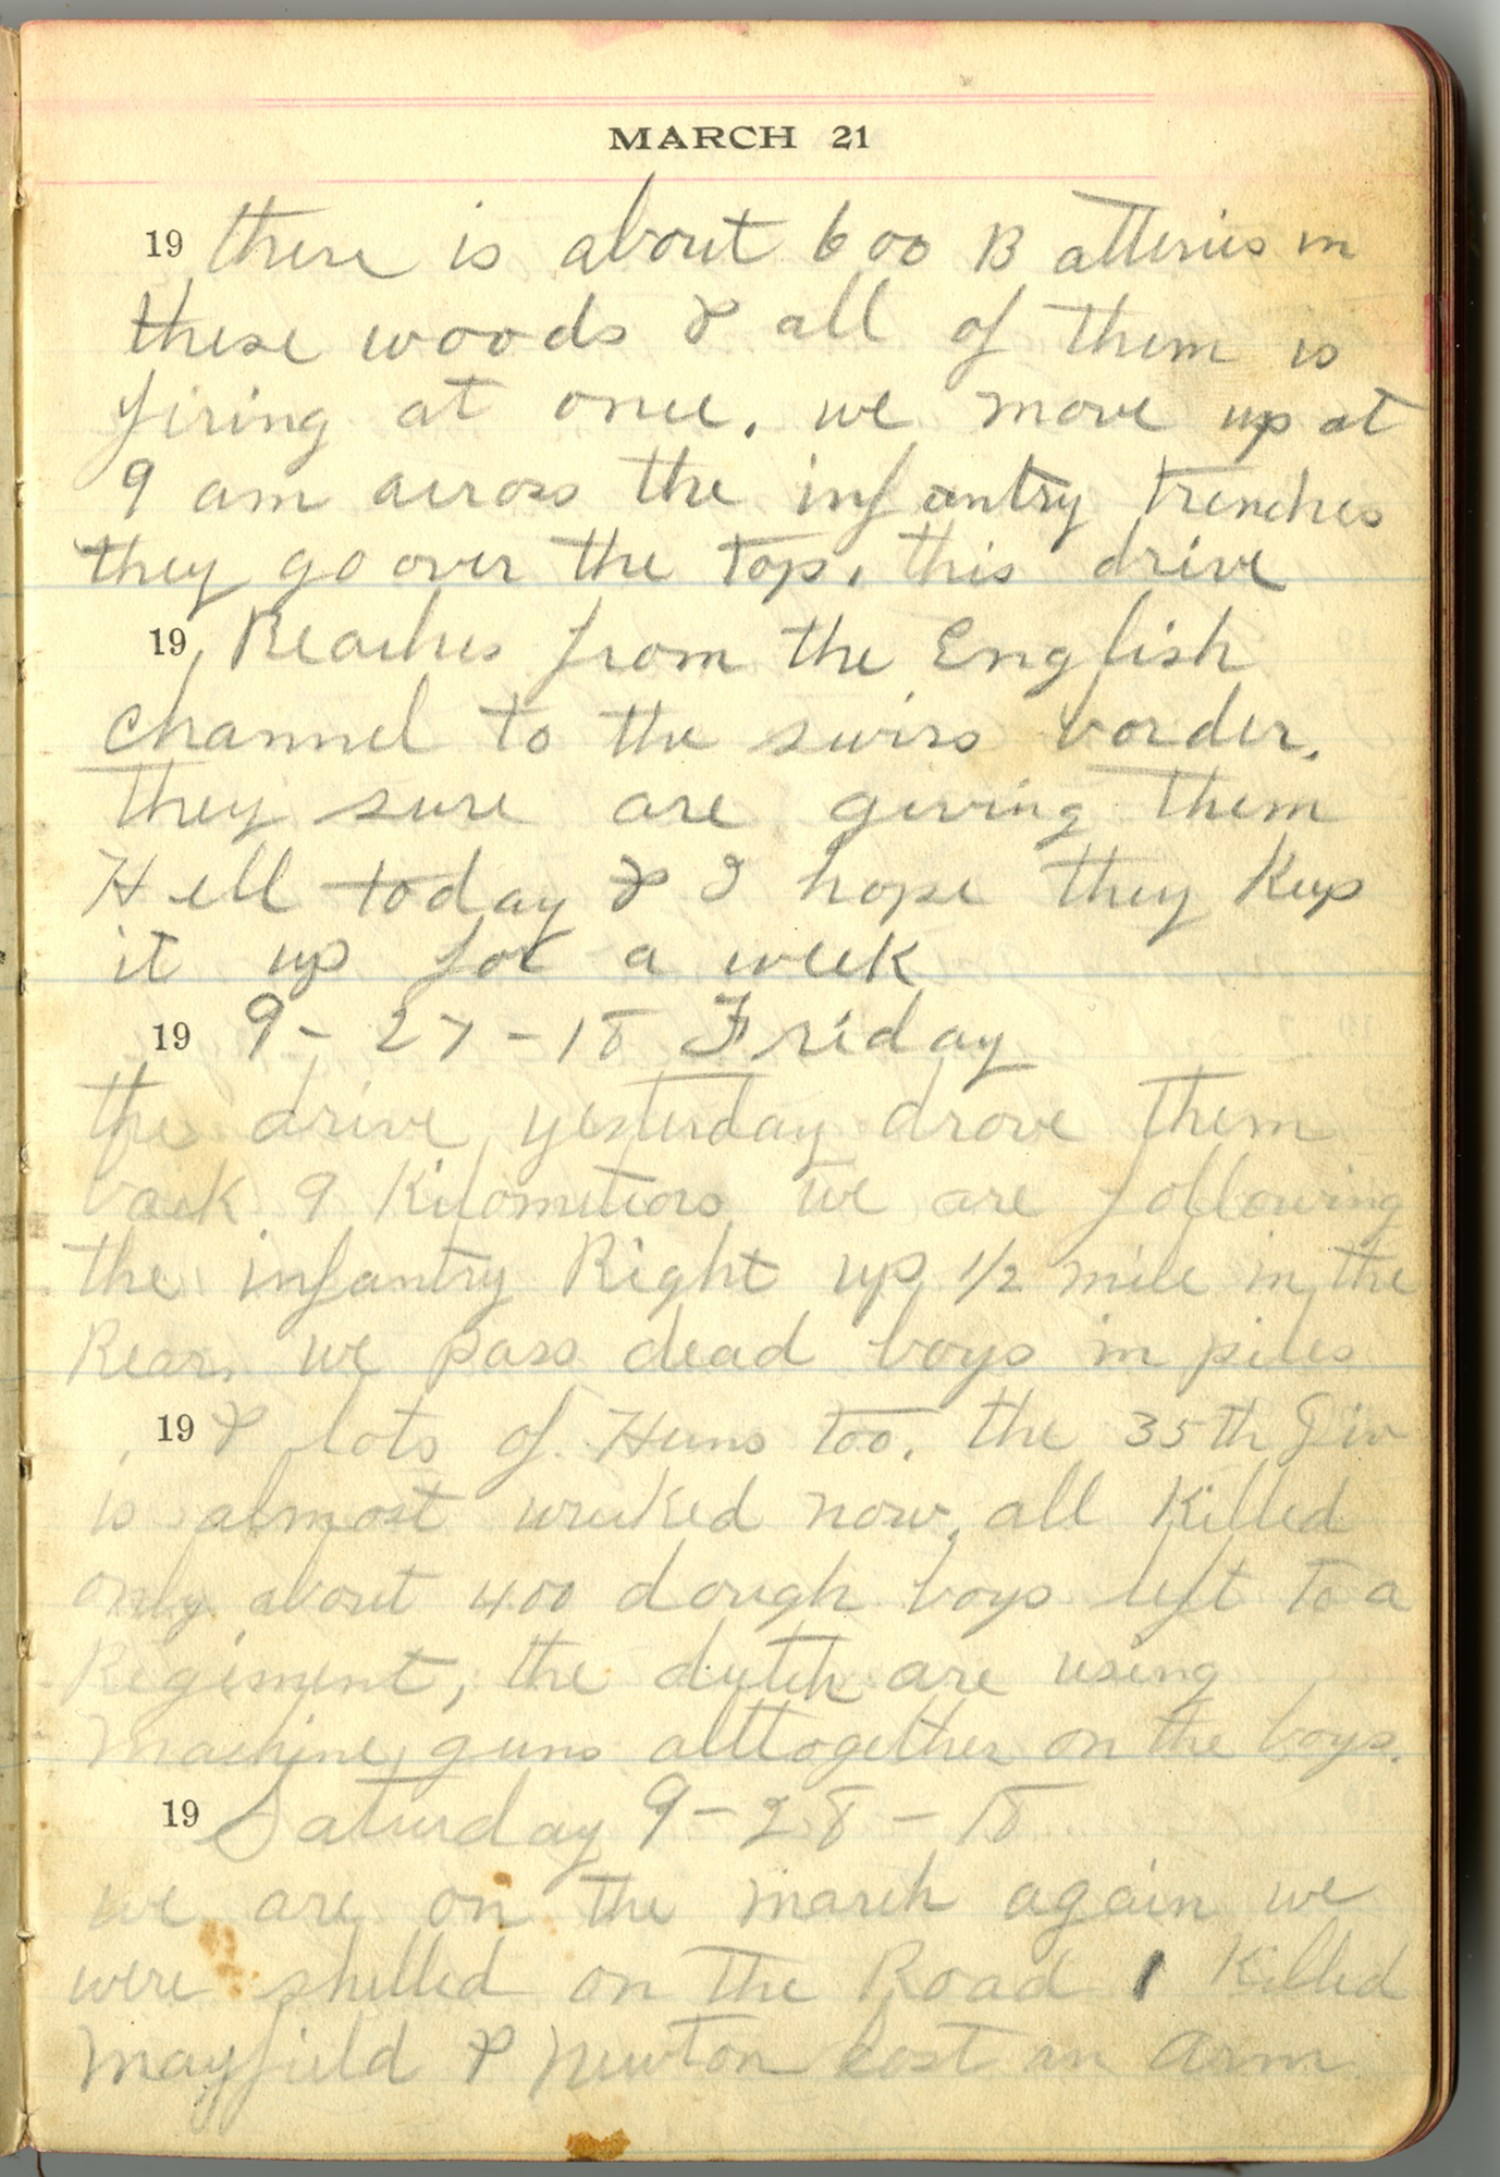 MARCH 21
19 there is about 600 Batteries in
these woods & all of them is
firing at once. we move up at
9 am across the infantry trenches
they go over the top. this drive
19 Reaches from the English
channel to the swiss border.
they sure are giving them
Hell today & I hope they Keep
it up for a week
19 9-27-18 Friday
the drive yesterday drove them
back 9 Kilometers we are following
the infantry Right up 1/2 mile in the
Rear. we pass dead boys in piles
19 & lots of Huns too. the 35th Div
is almost wrecked now, all Killed
only about 400 dough boys left to a
Regiment, the dutch are using
Machine guns alltogether on the boys.
19 Saturday 9-28-18
we are on the march again we
were shelled on the Road 1 Killed
Mayfield & Newton lost an arm